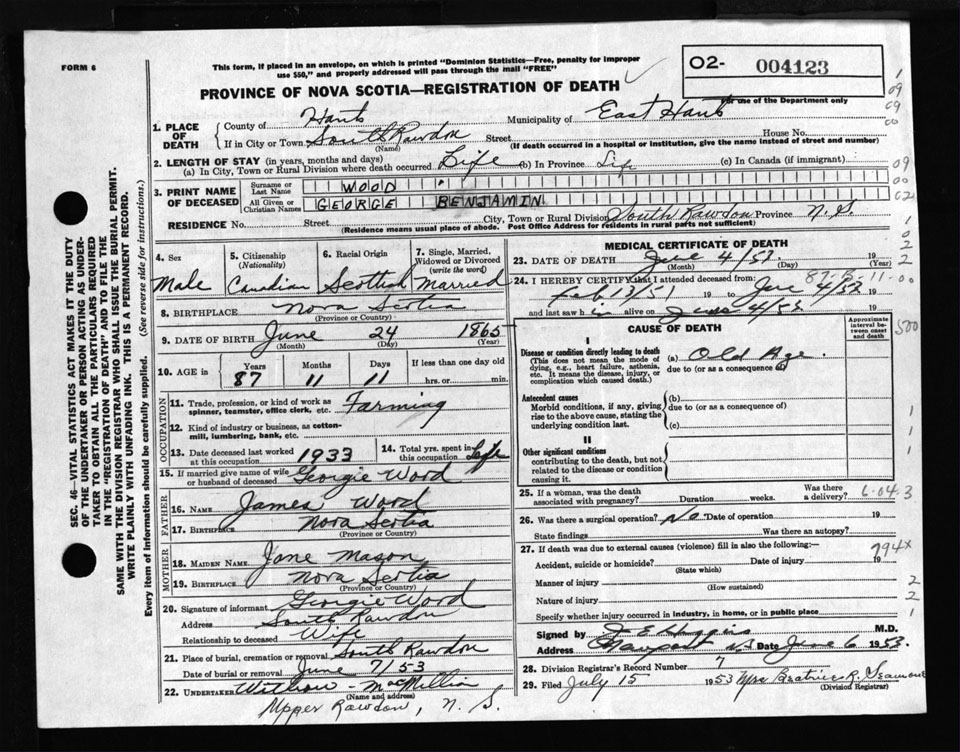 FORM 6
This form, if placed in an envelope, on which is printed "Dominion Statistics—Free, penalty for improper
use $50," and properly addressed will pass through the mail "FREE"
PROVINCE OF NOVA SCOTIA—REGISTRATION OF DEATH
02- 004123
For use of the Department only
SEC. 46 VITAL STATISTICS ACT MAKES IT THE DUTY
OF THE UNDERTAKER OR PERSON ACTING AS UNDER-
TAKER TO OBTAIN ALL THE PARTICULARS REQUIRED
IN THE "REGISTRATION OF DEATH" AND TO FILE THE
SAME WITH THE DIVISION REGISTRAR WHO SHALL ISSUE THE BURIAL PERMIT.
WRITE PLAINLY WITH UNFADING INK. THIS IS A PERMANENT RECORD.
Every item of information should be carefully supplied. (See reverse side for instructions.)
1. PLACE OF DEATH
County of Hants Municipality of East Hants
If in City or Town South Rawdon Street House No.
(Name) (If death occurred in a hospital or institution, give the name instead of street and number)
2. LENGTH OF STAY (in years, months and days)
(a) In City, Town or Rural Division where death occurred Life (b) In Province Life (c) In Canada (if immigrant)
3. PRINT NAME OF DECEASED
Surname or Last Name WOOD
All Given or Christian Names GEORGE BENJAMIN
RESIDENCE No. Street City, Town or Rural Division South Rawdon Province N.S.
(Residence means usual place of abode. Post Office Address for residents in rural parts not sufficient)
4. Sex
Male
5. Citizenship (Nationality)
Canadian
6. Racial Origin
Scottish
7. Single, Married, Widowed or Divorced (write the word)
Married
8. BIRTHPLACE Nova Scotia
(Province or Country)
9. DATE OF BIRTH June 24 1865
(Month) (Day) (Year)
10. AGE in Years Months Days If less than one day old
87 11 11 hrs. or min.
OCCUPATION
11. Trade, profession, or kind of work as
spinner, teamster, office clerk, etc. Farming
12. Kind of industry or business, as cotton-
mill, lumbering, bank, etc.
13. Date deceased last worked at this occupation 1933
14. Total yrs. spent in this occupation Life
15. If married give name of wife or husband of deceased Georgie Wood
FATHER
16. NAME James Wood
17. BIRTHPLACE Nova Scotia
(Province or Country)
MOTHER
18. MAIDEN NAME Jane Mason
19. BIRTHPLACE Nova Scotia
(Province or Country)
20. Signature of informant Georgie Wood
Address South Rawdon
Relationship to deceased Wife
21. Place of burial, cremation or removal South Rawdon
Date of burial or removal June 7/53
22. UNDERTAKER Withrow MacMillin
(Name and address)
Upper Rawdon, N. S.
MEDICAL CERTIFICATE OF DEATH
23. DATE OF DEATH June 4/53 19
(Month) (Day) (Year)
87-B-11-00
24. I HEREBY CERTIFY that I attended deceased from:
19 to June 4/53 19
and last saw h im alive on June 4/53 19
CAUSE OF DEATH
Approximate interval between onset and death
I
Disease or condition directly leading to death
(This does not mean the mode of dying, e.g., heart failure, asthenia, etc. It means the disease, injury, or complication which caused death.)
(a) Old Age
due to (or as a consequence of)
Antecedent causes
Morbid conditions, if any, giving rise to the above cause, stating the underlying condition last.
(b)
due to (or as a consequence of)
(c)
II
Other significant conditions
contributing to the death, but not related to the disease or condition causing it.
25. If a woman, was the death associated with pregnancy? Duration weeks. Was there a delivery?
6-04-3
26. Was there a surgical operation? No Date of operation 19
State findings Was there an autopsy?
27. If death was due to external causes (violence) fill in also the following:—
794x
Accident, suicide or homicide? Date of injury 19
(State which)
Manner of injury
(How sustained)
Nature of injury
Specify whether injury occurred in industry, in home, or in public place
Signed by M.D.
Address Date June 6 1953
28. Division Registrar's Record Number 7
29. Filed July 15 1953 Mrs Beatrice R.
(Division Registrar)